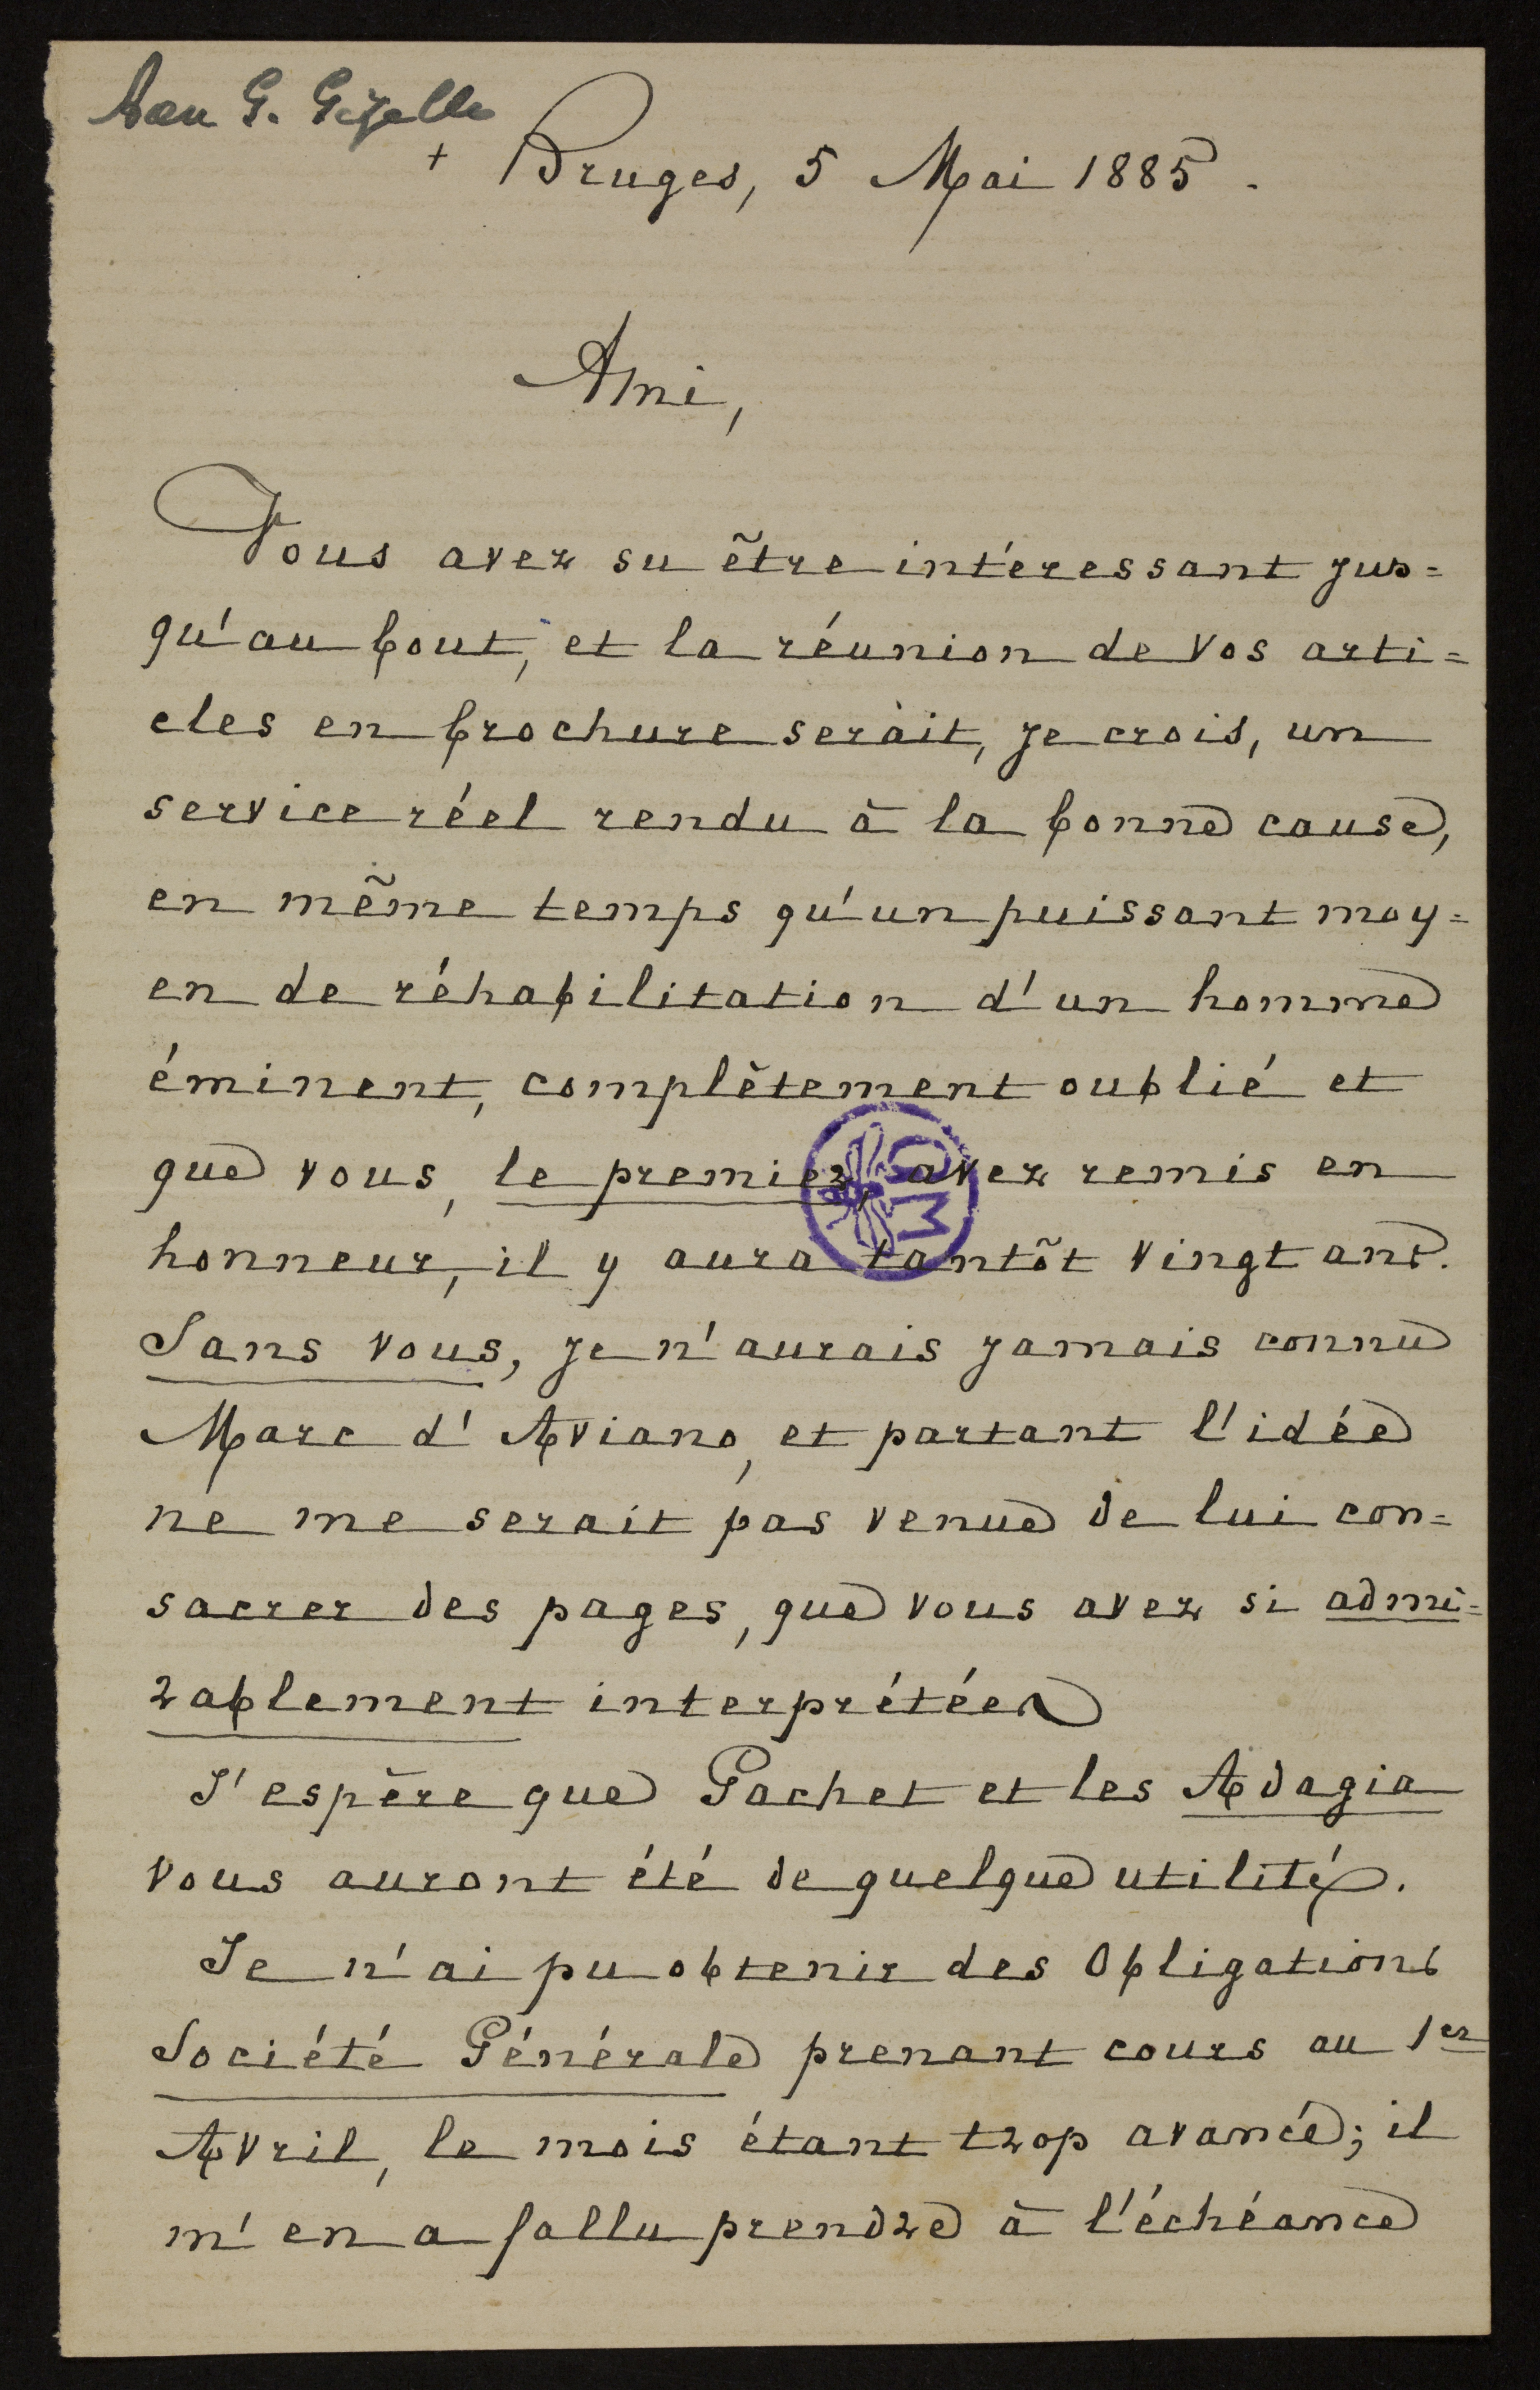 Aan G. Gezelle
+ Bruges, 5 Mai 1885.
Ami,
Vous avez su être intéressant jus=
qu'au bout, et la réunion de vos arti=
cles en brochure serait, je crois, un
service réel rendu à la bonne cause,
en même temps qu'un puissant moy=
en de réhabilitation d'un homme
éminent, complètement oublié et
que vous, le premier, avez remis en
honneur, il y aura tantôt vingt ans.
Sans vous, je n'aurais jamais connu
Marc d'Aviano, et partant l'idée
ne me serait pas venue de lui con=
sacrer des pages, que vous avez si admi=
rablement interprétées
J'espère que Gachet et les Adagia
vous auront été de quelque utilité.
Je n'ai pu obtenir des Obligations
Société Générale prenant cours au 1er
Avril, le mois étant trop avancé; il
m'en a fallu prendre à l'échéance
GM